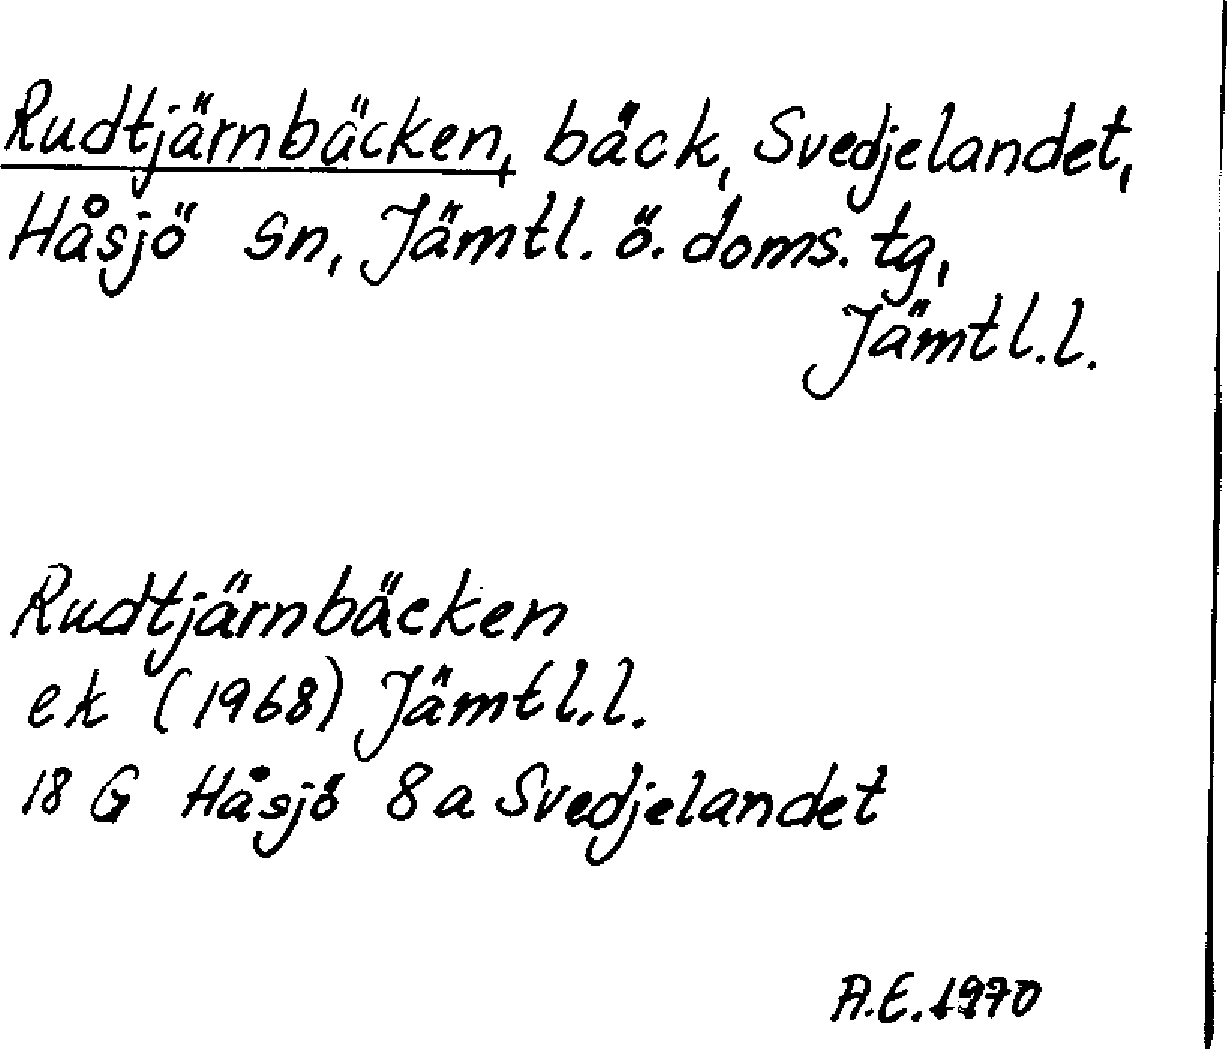 Rudtjärnbäcken, bäck, Svedjelandet,
Håsjö sn, Jämtl. ö. doms. tg,
Jämtl.l.
Rudtjärnbäcken
ek (1968) Jämtl.l.
18 G Håsjö 8a Svedjelandet
A.E. 1970